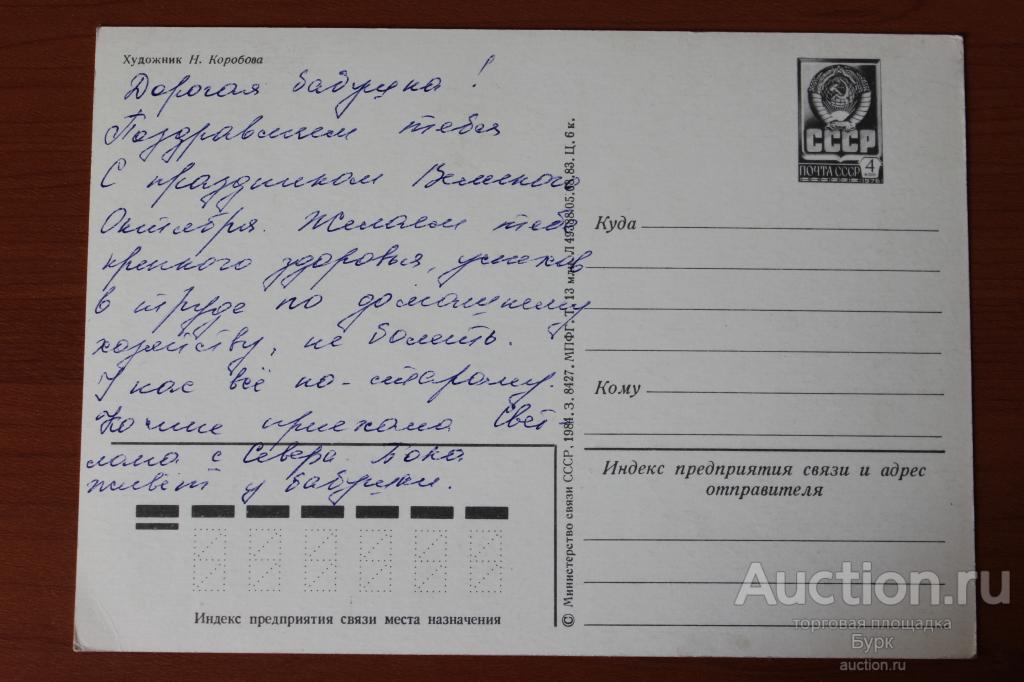 Художник Н. Коробова
Дорогая бабушка!
Поздравляем тебя
С праздником Великого
Октября. Желаем тебе
крепкого здоровья, успехов
в труде по домашнему
хозяйству, не болеть.
У нас всё по-старому.
К приехала Свет-
лана с Севера. Пока
живёт у бабушки.
Индекс предприятия связи места назначения
© Министерство связи СССР, 1984. З. 8427. МПФГ. Т. 13 млн. Л 05. 83. Ц. 6 к.
СССР
ПОЧТА СССР 4
1976
Куда
Кому
Индекс предприятия связи и адрес
отправителя
Auction.ru
торговая площадка
Бурк
auction.ru